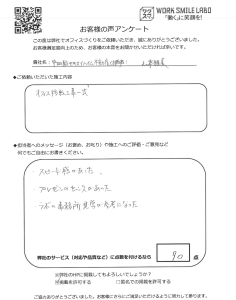 WORK SMILE LABO
「働く」に笑顔を!
お客様の声アンケート
この度は弊社でオフィスづくりをご依頼いただき、誠にありがとうございました。
お客様満足度向上のため、お客様の本音をお聞かせいただければ幸いです。
貴社名:
◆ご依頼いただいた施工内容
オフィス移転工事一式
◆担当者へのメッセージ(お褒め、お叱り)や施工へのご評価・ご意見など
何でもご自由にお書きください。
スピード感があった。
プレゼンのセンスがあった
ラボの事務所見学が参考になった
弊社のサービス(対応や品質など)に点数を付けるなら 90 点
※弊社のHPに掲載してもよろしいでしょうか?
掲載を許可する □匿名での掲載を許可する
ご協力ありがとうございました。お客様にさらにご満足いただけるように努力して参ります。